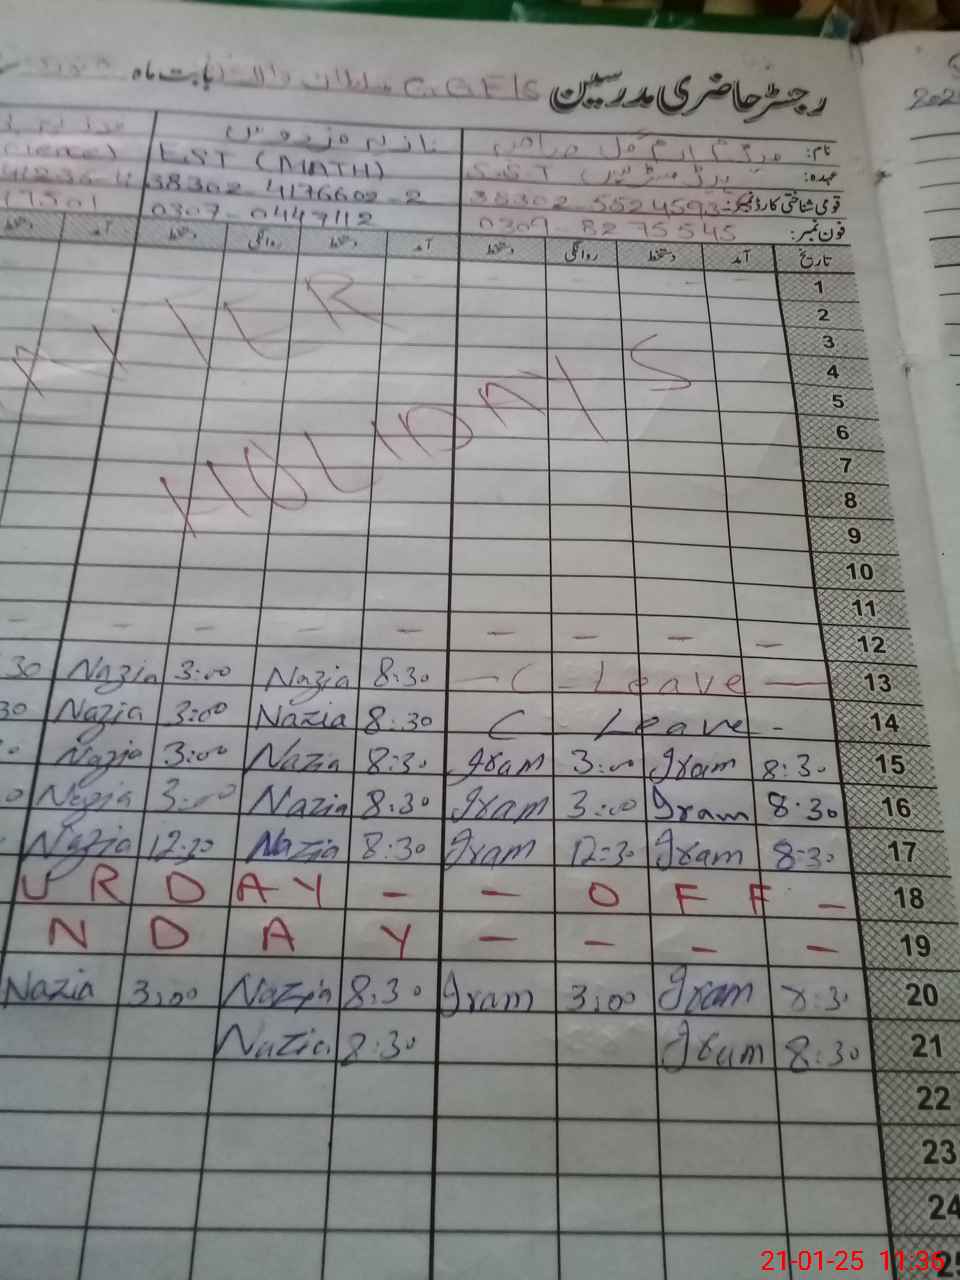 رجسٹر حاضری مدرسین G.G.E/S سلطان والا بابت ماہ
نام:
عہدہ: S.S.T EST (MATH)
قومی شناختی کارڈ نمبر: 38302-5524593-8 38302-4176602-2
فون نمبر: 0309-8275545 0307-0449112 17501
تاریخ آمد دستخط روانگی دستخط آمد دستخط روانگی دستخط آمد
1
2
WINTER
3
4
HOLIDAYS
5
6
7
8
9
10
11
- - - - - - - - 12
30 Nazia 3:00 Nazia 8:30 - C Leave - 13
30 Nazia 3:00 Nazia 8:30 C Leave - 14
Nazia 3:00 Nazia 8:30 Iram 3:00 Iram 8:30 15
Nazia 3:00 Nazia 8:30 Iram 3:00 Iram 8:30 16
Nazia 12:30 Nazia 8:30 Iram 12:30 Iram 8:30 17
U R D A Y - - O F F - 18
N D A Y - - - - 19
Nazia 3:00 Nazia 8:30 Iram 3:00 Iram 8:30 20
Nazia 8:30 Iram 8:30 21
22
23
24
25
21-01-25 11:36